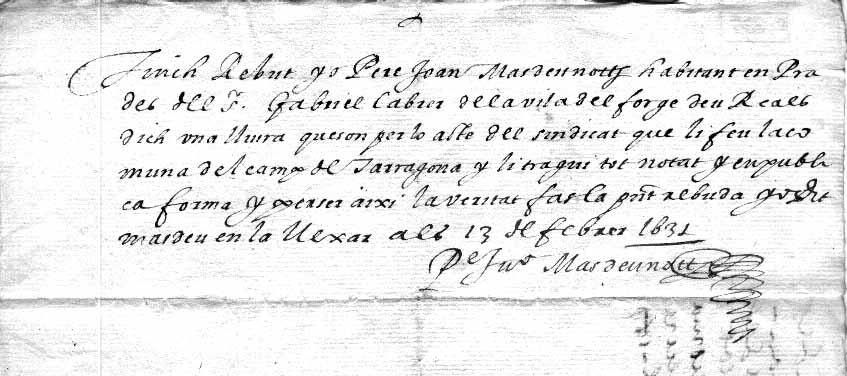 Tinch Rebut yo Pere Joan Masdeu nott habitant en Pra
des dell S. Gabriel Cabrer de la vila del forge deu Reals
dich una lliura que son per lo acte del sindicat que li feu la co
muna del camp de Tarragona y li tragui tot notat y en publi
ca forma y per ser aixi la veritat fas la pnt rebuda yo dit
masdeu en la Alexar als 13 de febrer 1631
Pe Juo Masdeu nott